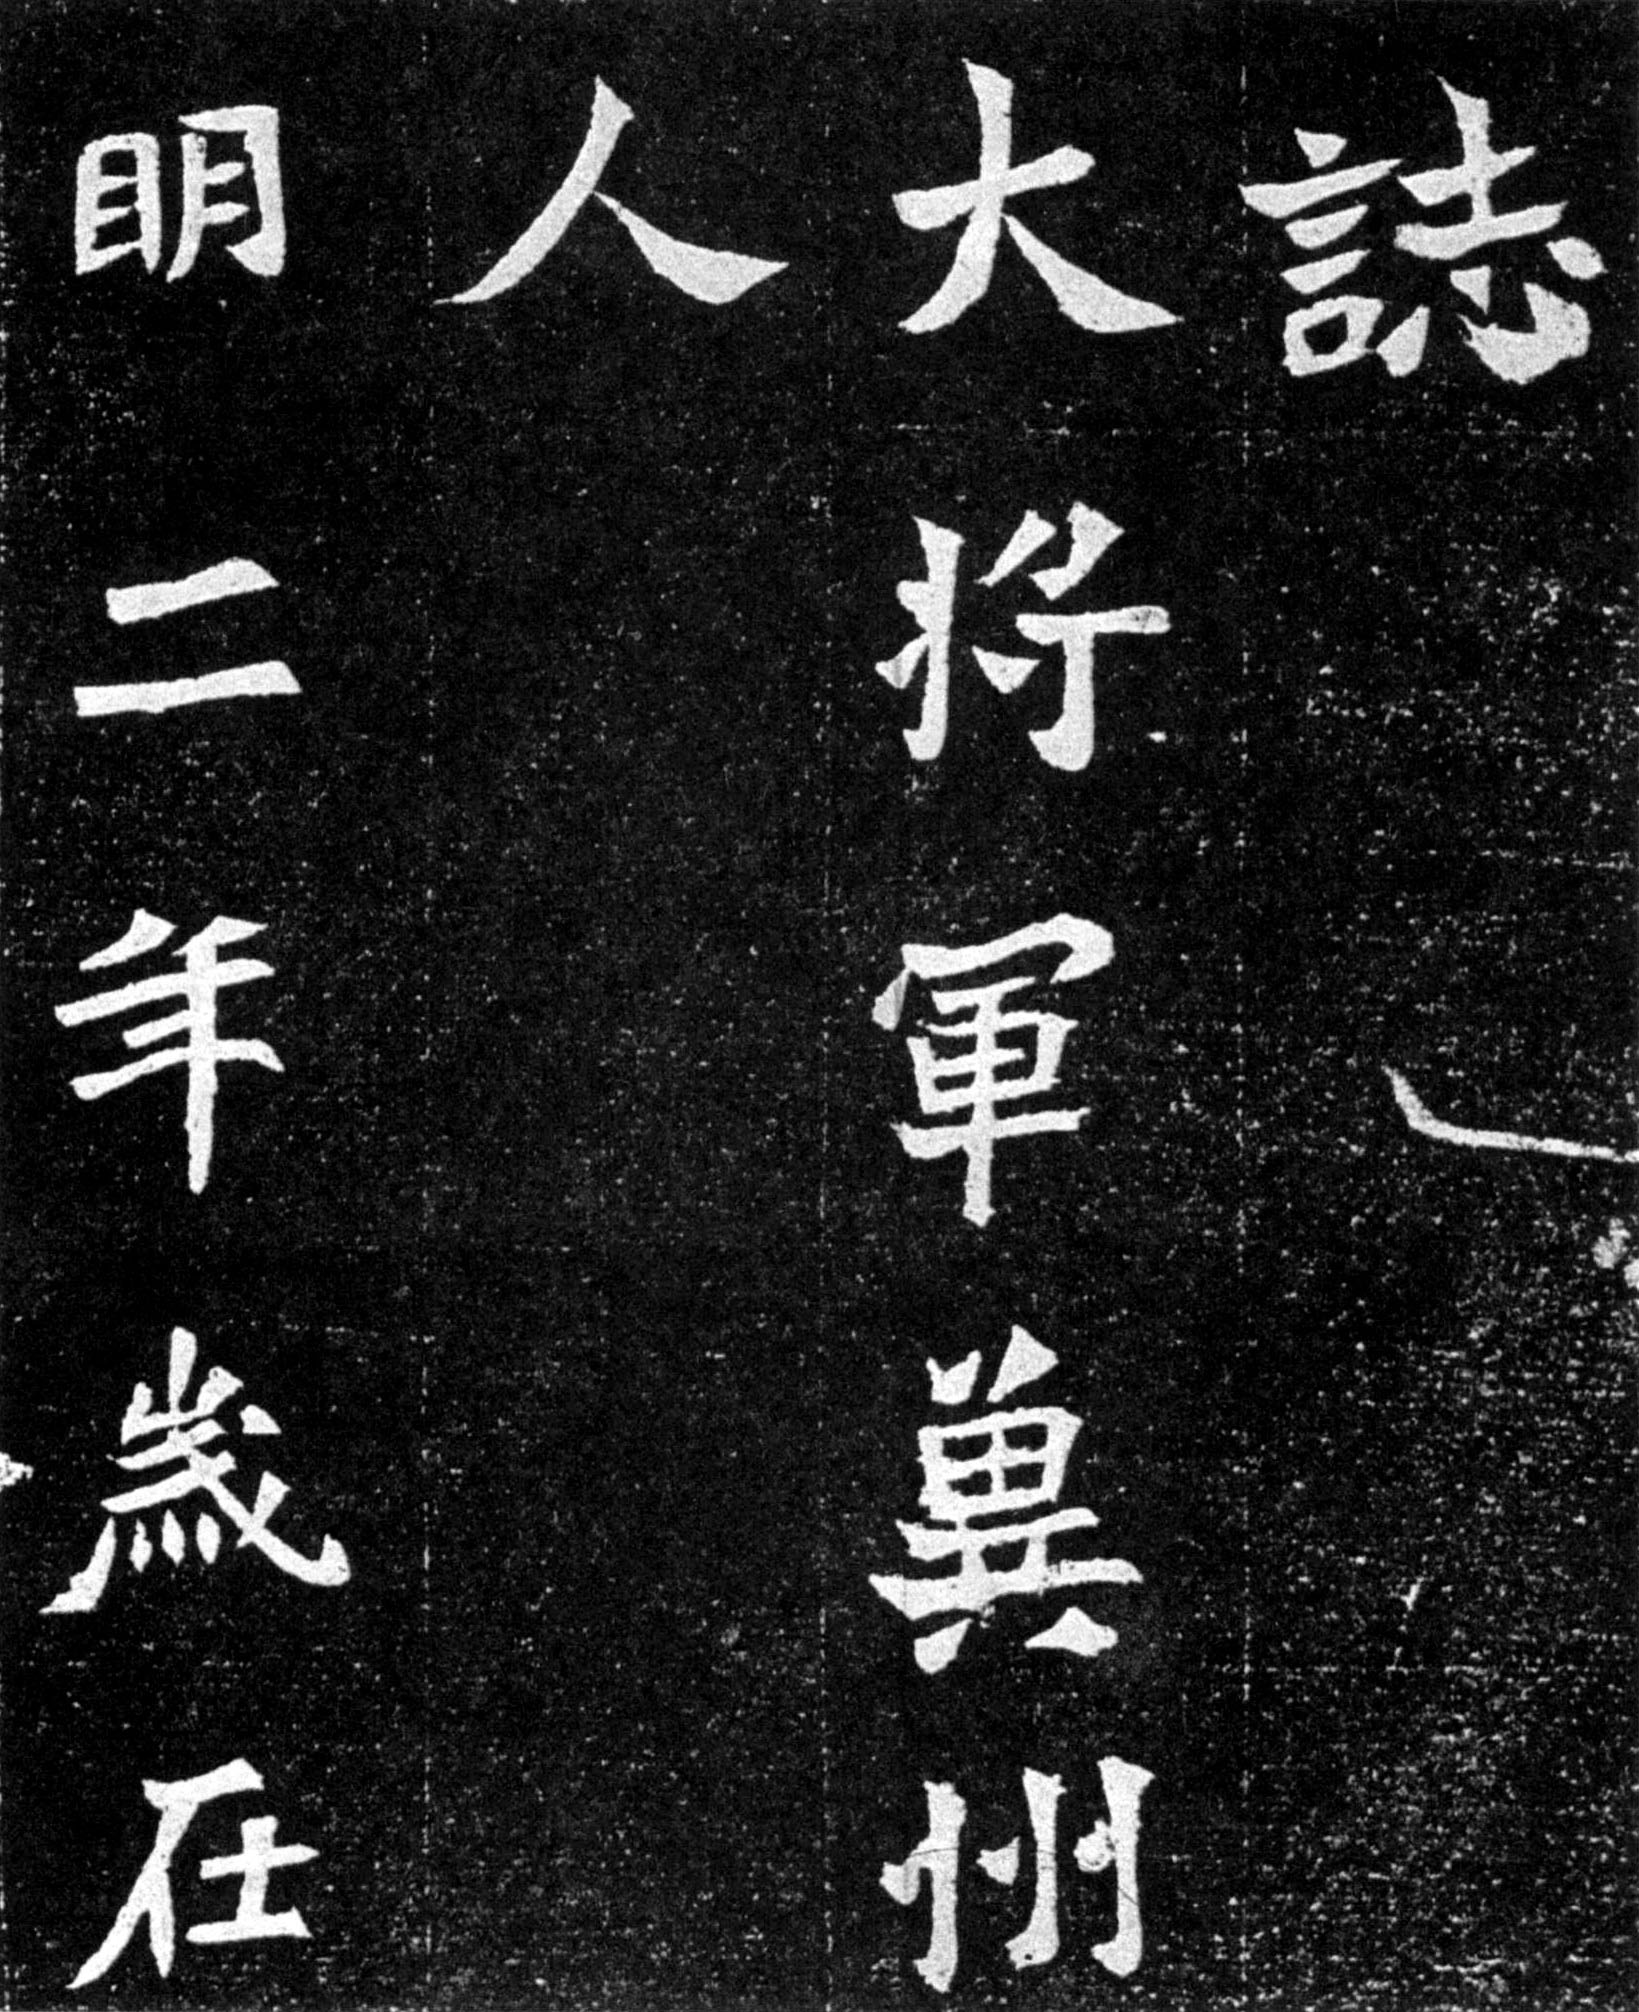 誌
大將軍冀州
人
明二年歲在